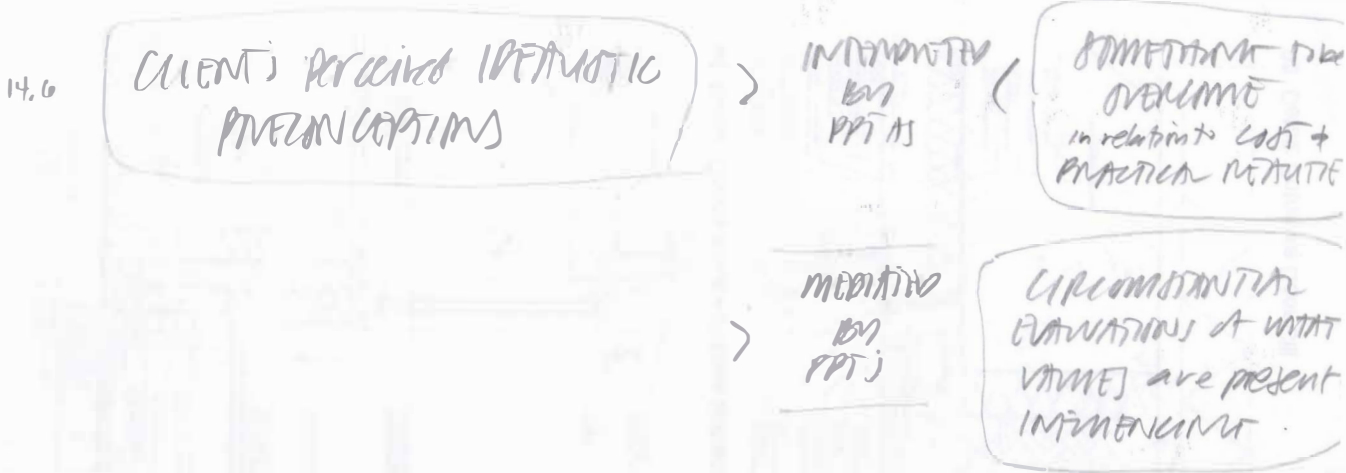 14.6
CLIENT'S perceived IDEALISTIC
PRECONCEPTIONS
>
INTERPRETED
BY
PPT AS
<
SOMETHING to be
OVERCOME
in relation to COST +
PRACTICAL REALITIE
>
MEDIATED
BY
PPT's
CIRCUMSTANTIAL
EVALUATIONS OF WHAT
VALUES are present
INFLUENCING.